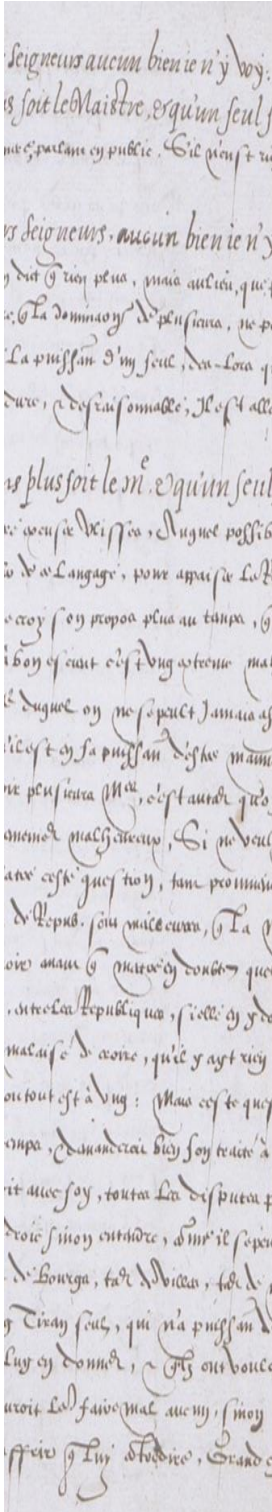 Seigneurs aucun bien ie n'y voy:
soit le Maistre, & qu'un seul s
parlant en public. S'il n'eust ri
rs Seigneurs, aucun bien ie n'y
dict q̃ rien plus, mais au lieu, que
q̃ La dominaon̄ de plusieurs, ne p
La puissan̄ d'un seul, des-Lors q
dure, & desraisonnable, Il est all
ns plus soit le m.e & qu'un seul
excuser Ulisses, Auquel possib
de ce Langage, pour appaiser La R
croy son propos plus au temps, q̃
bon escient c'est ung extreme ma
duquel on ne se peult Jamais as
'il est en sa puissan̄ d'estre mauu
plusieurs M.es, c'est autāt qu'o
malheureux, Si ne veul
ceste question, tant pourmen
de Repub. sont meilleures, q̃ La
oir auant q̃ mettre en doubte que
entre les Republiques, si elle en y do
malaisé de croire, qu'il y ayt rien
ou tout est à ung: Mais ceste ques
emps, & demanderoit bien son traité à
it auec soy, toutes Les disputes p
droie sinon entendre, cōme il se peu
de Bourgs, tāt de Villes, tāt de
Tiran seul, qui n'a puissan̄
Luy en donnēt, & qu'ilz ont voul
uroit Le faire mal aucun, sinon
ffrir q̃ Luy cōtredire, Grand